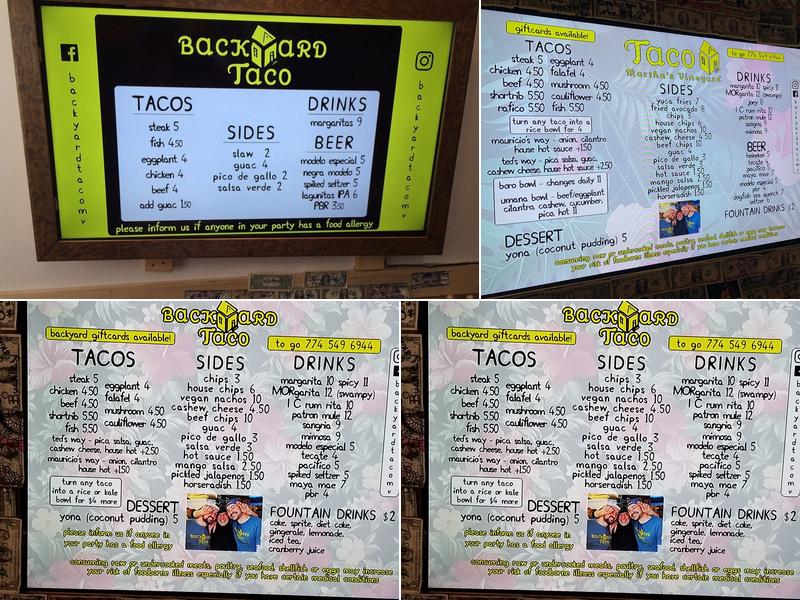 BACKYARD
Taco
backyardtacomv
TACOS
steak 5
fish 4.50
eggplant 4
chicken 4
beef 4
add guac 1.50
SIDES
slaw 2
guac 4
pico de gallo 2
salsa verde 2
DRINKS
margaritas 9
BEER
modelo especial 5
negra modelo 5
spiked seltzer 5
lagunitas IPA 6
PBR 3.50
backyardtacomv
please inform us if anyone in your party has a food allergy
giftcards available!
Taco
Martha's Vineyard
to go 774 549 6944
TACOS
steak 5 eggplant 4
chicken 4.50 falafel 4
beef 4.50 mushroom 4.50
shortrib 5.50 cauliflower 4.50
fish 5.50
turn any taco into a
rice bowl for 4
mauricio's way - onion, cilantro
house hot sauce +1.50
ted's way - pica salsa, guac,
cashew cheese, house hot sauce +2.50
boro bowl - changes daily 11
umana bowl - beef/eggplant
cilantro, cashew, cucumber,
pica, hot 11
DESSERT
yona (coconut pudding) 5
SIDES
yuca fries 7
fried avocado 8
chips 3
house chips 6
vegan nachos 10
cashew, cheese 4.50
beef chips 10
guac 4
pico de gallo 3
salsa verde 3
hot sauce 1.50
mango salsa 2.50
pickled jalapenos 1.50
horseradish 1.50
DRINKS
margarita 10 spicy 11
MORgarita 12 (swampy)
I C rum rita 10
patron mule 12
sangria 9
mimosa 9
BEER
heineken 5
tecate 4
pacifico 5
maya mae 7
modelo especial 5
pbr 4
dogfish sea quench 7
seltzer 6
FOUNTAIN DRINKS $2
consuming raw or undercooked meats, poultry, seafood, shellfish or eggs may increase
your risk of foodborne illness especially if you have certain medical conditions
BACKYARD
Taco
backyard giftcards available!
to go 774 549 6944
TACOS
steak 5 eggplant 4
chicken 4.50 falafel 4
beef 4.50 mushroom 4.50
shortrib 5.50 cauliflower 4.50
fish 5.50
ted's way - pica salsa, guac,
cashew cheese, house hot +2.50
mauricio's way - onion, cilantro
house hot +1.50
turn any taco
into a rice or kale
bowl for $4 more
DESSERT
yona (coconut pudding) 5
please inform us if anyone in
your party has a food allergy
SIDES
chips 3
house chips 6
vegan nachos 10
cashew, cheese 4.50
beef chips 10
guac 4
pico de gallo 3
salsa verde 3
hot sauce 1.50
mango salsa 2.50
pickled jalapenos 1.50
horseradish 1.50
DRINKS
margarita 10 spicy 11
MORgarita 12 (swampy)
I C rum rita 10
patron mule 12
sangria 9
mimosa 9
modelo especial 5
tecate 4
pacifico 5
spiked seltzer 5
maya mae 7
pbr 4
FOUNTAIN DRINKS $2
coke, sprite, diet coke,
gingerale, lemonade,
iced tea,
cranberry juice
consuming raw or undercooked meats, poultry, seafood, shellfish or eggs may increase
your risk of foodborne illness especially if you have certain medical conditions
BACKYARD
Taco
backyard giftcards available!
to go 774 549 6944
TACOS
steak 5 eggplant 4
chicken 4.50 falafel 4
beef 4.50 mushroom 4.50
shortrib 5.50 cauliflower 4.50
fish 5.50
ted's way - pica salsa, guac,
cashew cheese, house hot +2.50
mauricio's way - onion, cilantro
house hot +1.50
turn any taco
into a rice or kale
bowl for $4 more
DESSERT
yona (coconut pudding) 5
please inform us if anyone in
your party has a food allergy
SIDES
chips 3
house chips 6
vegan nachos 10
cashew, cheese 4.50
beef chips 10
guac 4
pico de gallo 3
salsa verde 3
hot sauce 1.50
mango salsa 2.50
pickled jalapenos 1.50
horseradish 1.50
DRINKS
margarita 10 spicy 11
MORgarita 12 (swampy)
I C rum rita 10
patron mule 12
sangria 9
mimosa 9
modelo especial 5
tecate 4
pacifico 5
spiked seltzer 5
maya mae 7
pbr 4
FOUNTAIN DRINKS $2
coke, sprite, diet coke,
gingerale, lemonade,
iced tea,
cranberry juice
consuming raw or undercooked meats, poultry, seafood, shellfish or eggs may increase
your risk of foodborne illness especially if you have certain medical conditions